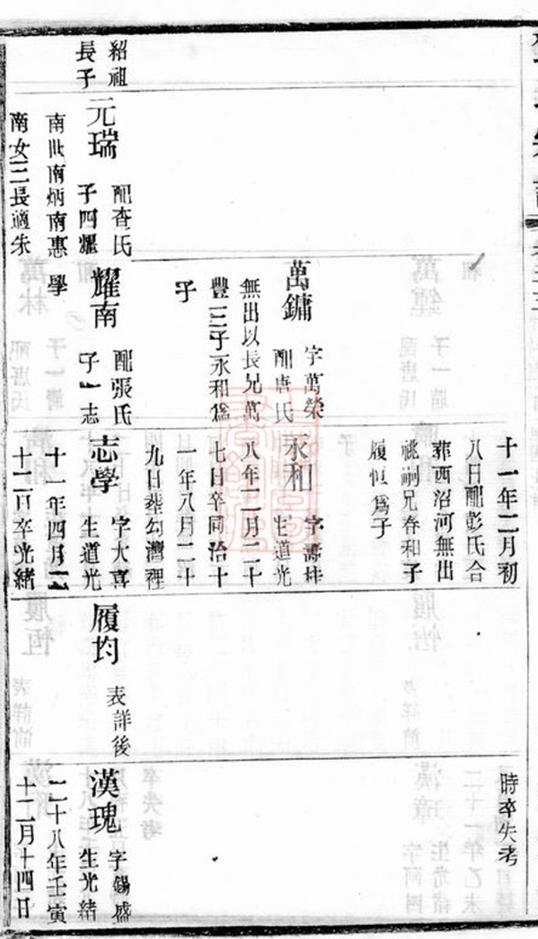 紹祖
長子
元瑞
配查氏
子四耀
南世南炳南惠
南女三長適朱
萬鏞
字萬榮
配唐氏
無出以長兄萬
豐三子永和為
子
耀南
配張氏
子一志
學
十一年二月初
八日配彭氏合
葬西沼河無出
祧嗣兄春和子
履恒為子
永和
字壽桂
生道光
八年二月二十
七日卒同治十
一年八月二十
九日葬勾灣裡
志學
字大喜
生道光
十一年四月二
十二日卒光緒
履均
表詳後
時卒失考
漢瑰
字錫盛
生光緒
二十八年壬寅
十二月十四日